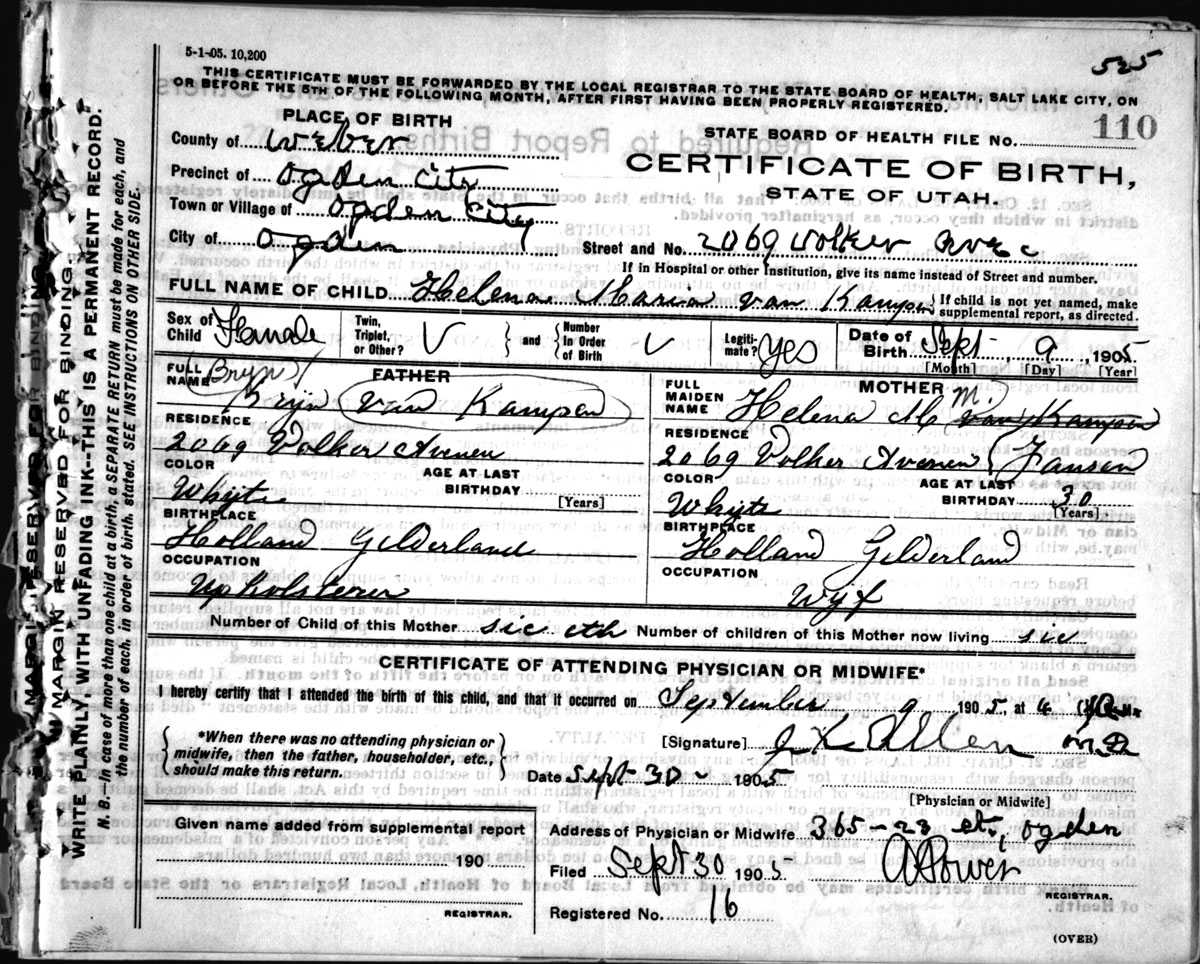 5-1-05. 10,200
525
THIS CERTIFICATE MUST BE FORWARDED BY THE LOCAL REGISTRAR TO THE STATE BOARD OF HEALTH, SALT LAKE CITY, ON
OR BEFORE THE 5TH OF THE FOLLOWING MONTH, AFTER FIRST HAVING BEEN PROPERLY REGISTERED.
PLACE OF BIRTH
STATE BOARD OF HEALTH FILE NO. 110
County of Weber
CERTIFICATE OF BIRTH,
Precinct of Ogden City
STATE OF UTAH.
Town or Village of Ogden City
City of Ogden Street and No. 2069 Volker Avec
If in Hospital or other Institution, give its name instead of Street and number.
FULL NAME OF CHILD Helena Maria van Kampen } If child is not yet named, make supplemental report, as directed.
Sex of Child Female Twin, Triplet, or Other? V } and { Number In Order of Birth V Legiti-mate? yes Date of Birth Sept 9 1905
[Month] [Day] [Year]
FATHER
FULL NAME (Bryn) Kryn van Kampen
RESIDENCE
2069 Volker Avenen
COLOR AGE AT LAST
Whyte BIRTHDAY [Years]
BIRTHPLACE
Holland Gelderland
OCCUPATION
Upholsterer
MOTHER
FULL MAIDEN NAME Helena M van Kampen M.
RESIDENCE
2069 Volker Avenen Jansen
COLOR AGE AT LAST
Whyte BIRTHDAY 30
[Years]
BIRTHPLACE
Holland Gelderland
OCCUPATION
Wyf
Number of Child of this Mother sic eth Number of children of this Mother now living sic
CERTIFICATE OF ATTENDING PHYSICIAN OR MIDWIFE*
I hereby certify that I attended the birth of this child, and that it occurred on September 9 1905, at 4
*When there was no attending physician or
midwife, then the father, householder, etc.,
should make this return.
[Signature] Allen MD
Date Sept 30 1905
[Physician or Midwife]
Given name added from supplemental report
190
REGISTRAR.
Address of Physician or Midwife 365-23 st. Ogden
Filed Sept 30 1905
REGISTRAR.
Registered No. 16
(OVER)
MARGIN RESERVED FOR BINDING
MARGIN RESERVED FOR BINDING
WRITE PLAINLY WITH UNFADING INK--THIS IS A PERMANENT RECORD.
N. B.—In case of more than one child at a birth, a SEPARATE RETURN must be made for each, and
the number of each, in order of birth, stated. SEE INSTRUCTIONS ON OTHER SIDE.